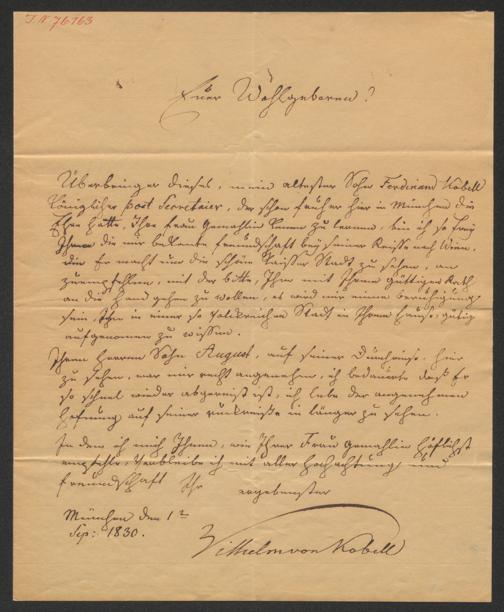 I.N 76163
Euer Wohlgeboren!
Überbringer dieses, mein ältester Sohn Ferdinand Kobell
königlicher Post Secretaier, der schon früher hier in München die
Ehre hatte, Ihre Frau Gemahlin kennen zu lernen, bin ich so frey
Ihnen die mir bekante freundschaft bey seiner Reise nach Wien.
die Er macht um die schöne Kaiser Stadt zu sehen, an
zuempfehlen, mit der bitte, Ihm mit Ihrem güttigen Rath
an die Hand gehen zu wollen, es wird mir eine beruhigung
sein, Ihn in einer so volkreichen Stadt in Ihrem Hause gütig
aufgenomen zu wissen.
Ihren Herren Sohn August, auf seiner Durchreise hier
zu sehen, war mir recht angenehm, ich bedauerte daß Er
so schnel wieder abgereist ist, ich lebe der angenehmen
Hofnung auf seiner rückreise in länger zu sehen.
In dem ich mich Ihnen, wie Ihrer Frau Gemahlin höflichst
empfehle, verbleibe ich mit aller Hochachtung und
freundschaft Ihr ergebenster
München den 1ten
Sep: 1830.
Wilhelm von Kobell